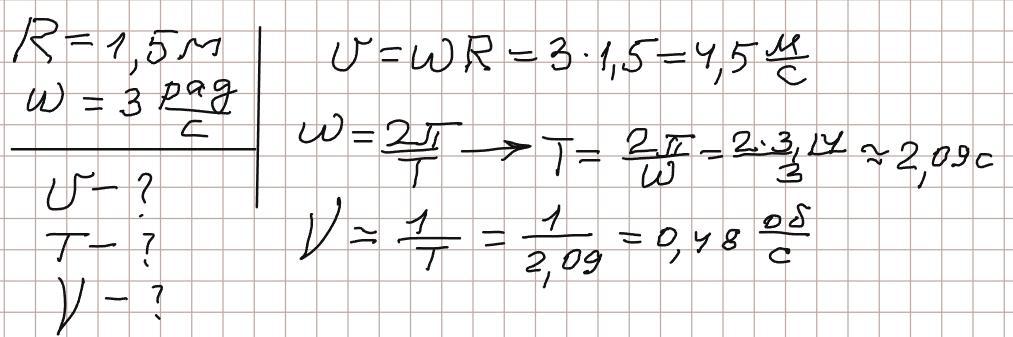 R = 1,5 м
ω = 3 рад/с
υ - ?
T - ?
ν - ?
υ = ωR = 3 · 1,5 = 4,5 м/с
ω = 2π/T → T = 2π/ω = 2·3,14/3 ≈ 2,09 с
ν = 1/T = 1/2,09 = 0,48 об/с